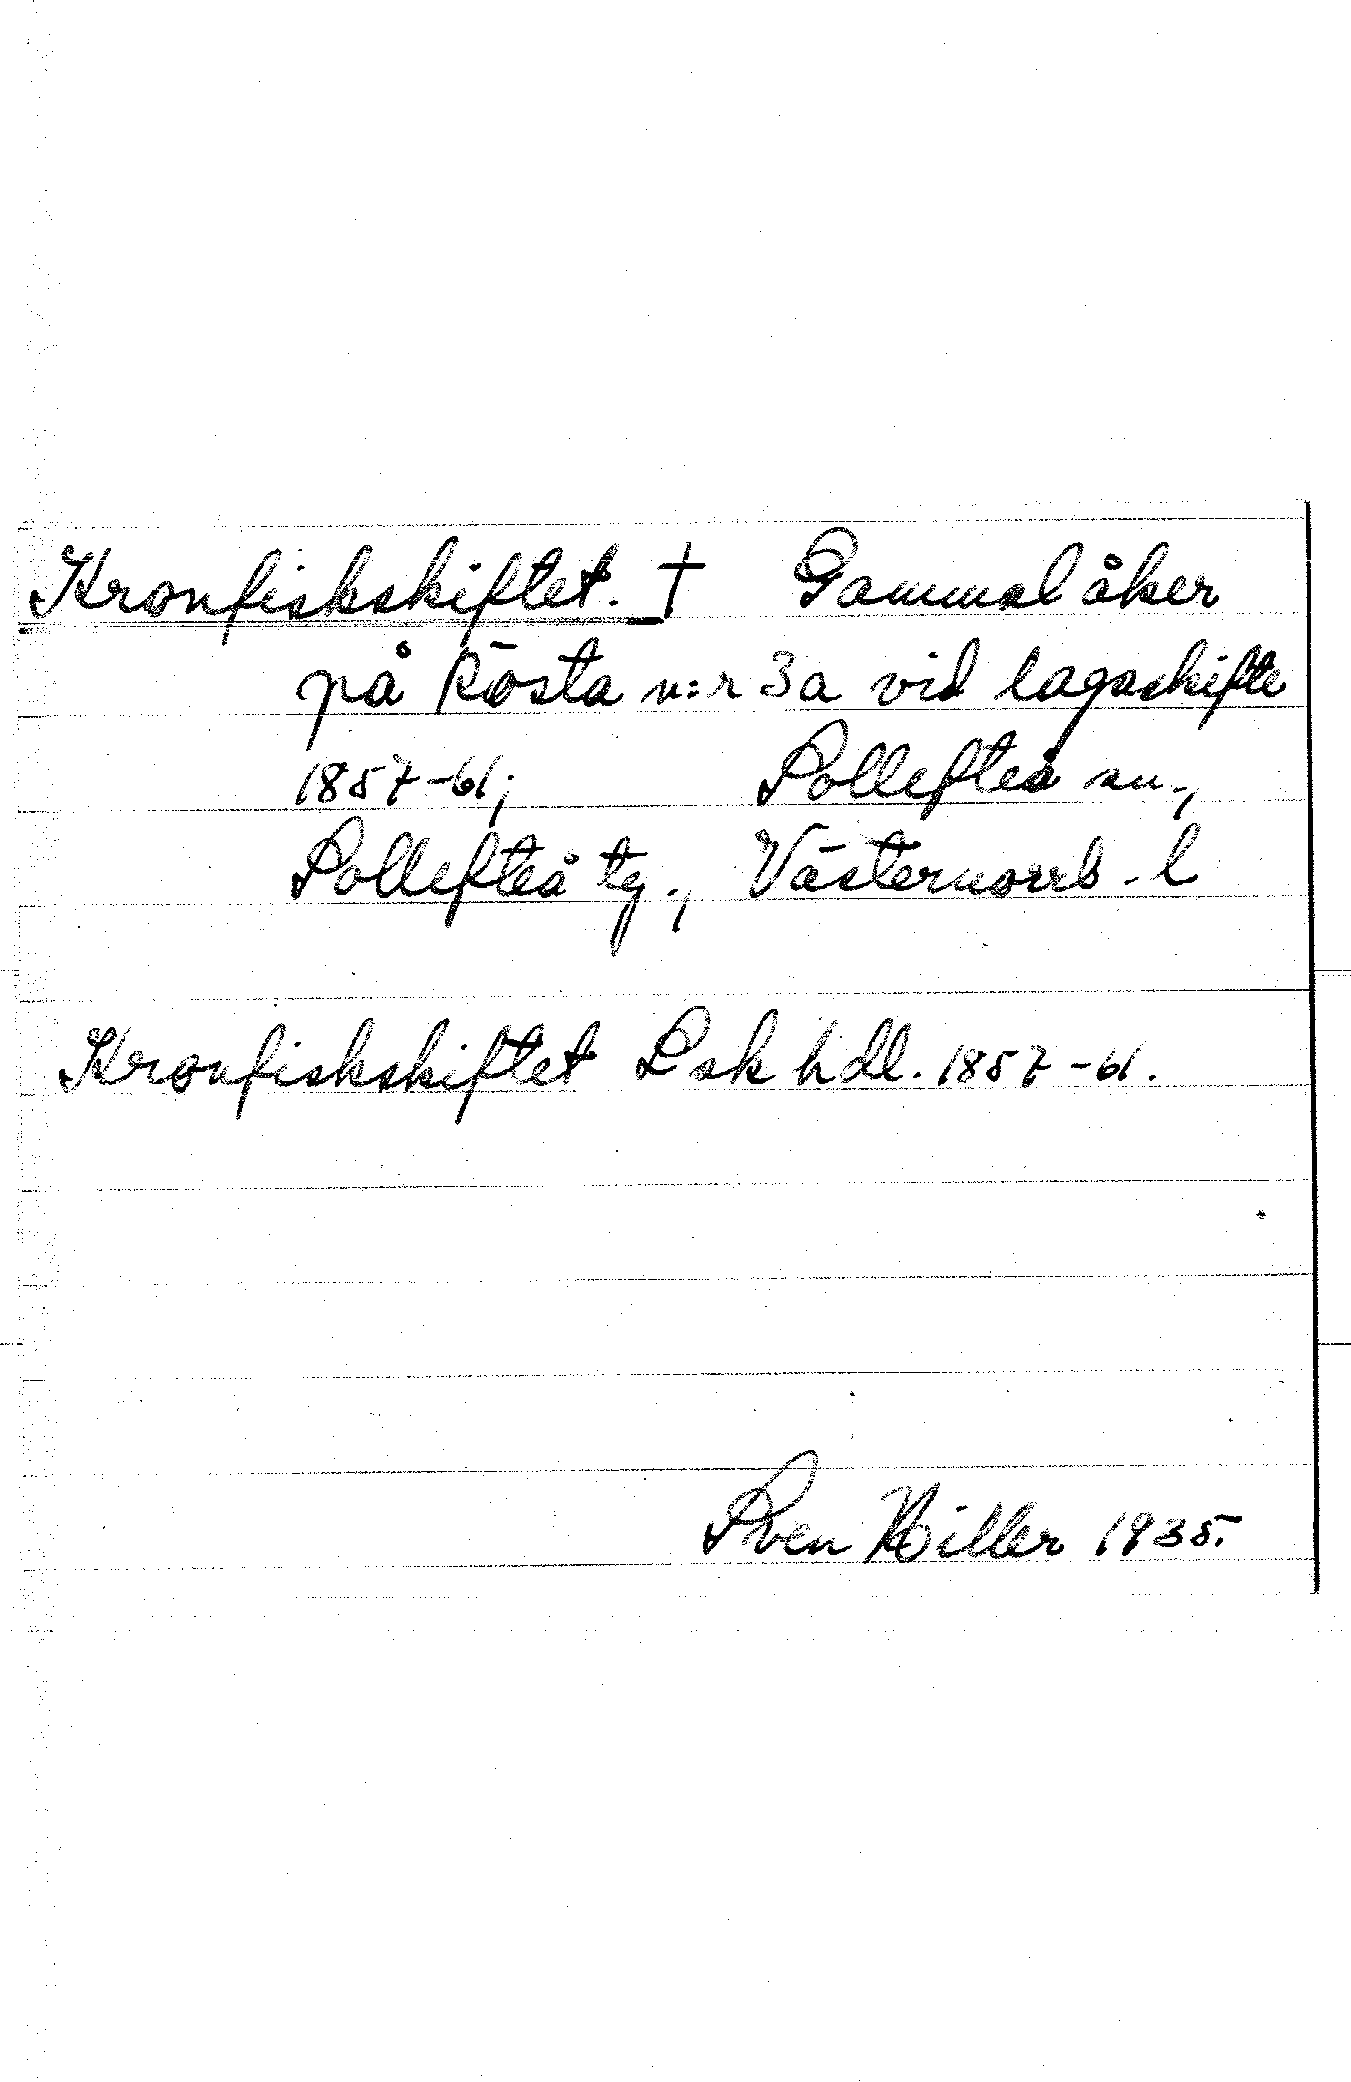 Kronfiskskiftet. † Gammal åker
på Rösta n:r 3a vid lagaskifte
1857-61; Sollefteå sn.,
Sollefteå tg., Västernorrl. l
Kronfiskskiftet Lsk hdl. 1857-61.
Sven Hiller 1935.